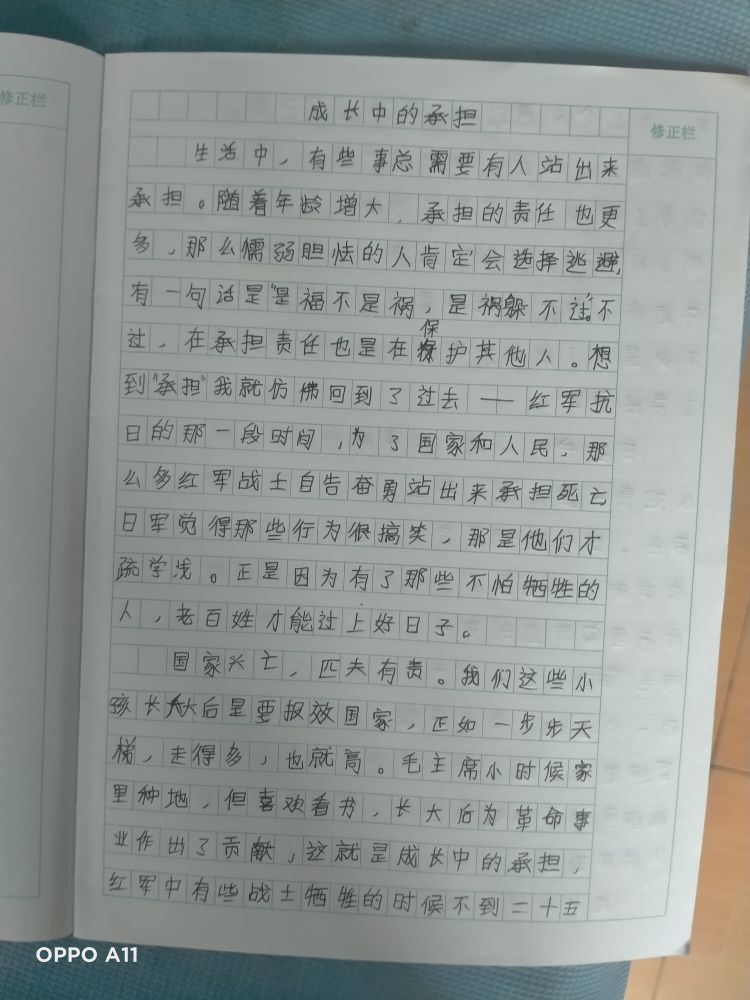 修正栏
修正栏
成长中的承担
生活中，有些事总需要有人站出来
承担。随着年龄增大，承担的责任也更
多，那么懦弱胆怯的人肯定会选择逃避，
有一句话是"是福不是祸，是祸躲不过"。不
过，在承担责任也是在保护其他人。想
到"承担"我就仿佛回到了过去——红军抗
日的那一段时间，为了国家和人民，那
么多红军战士自告奋勇站出来承担死亡
日军觉得那些行为很搞笑，那是他们才
疏学浅。正是因为有了那些不怕牺牲的
人，老百姓才能过上好日子。
国家兴亡，匹夫有责。我们这些小
孩长大后是要报效国家，正如一步步天
梯，走得多，也就高。毛主席小时候家
里种地，但喜欢看书，长大后为革命事
业作出了贡献，这就是成长中的承担，
红军中有些战士牺牲的时候不到二十五
OPPO A11